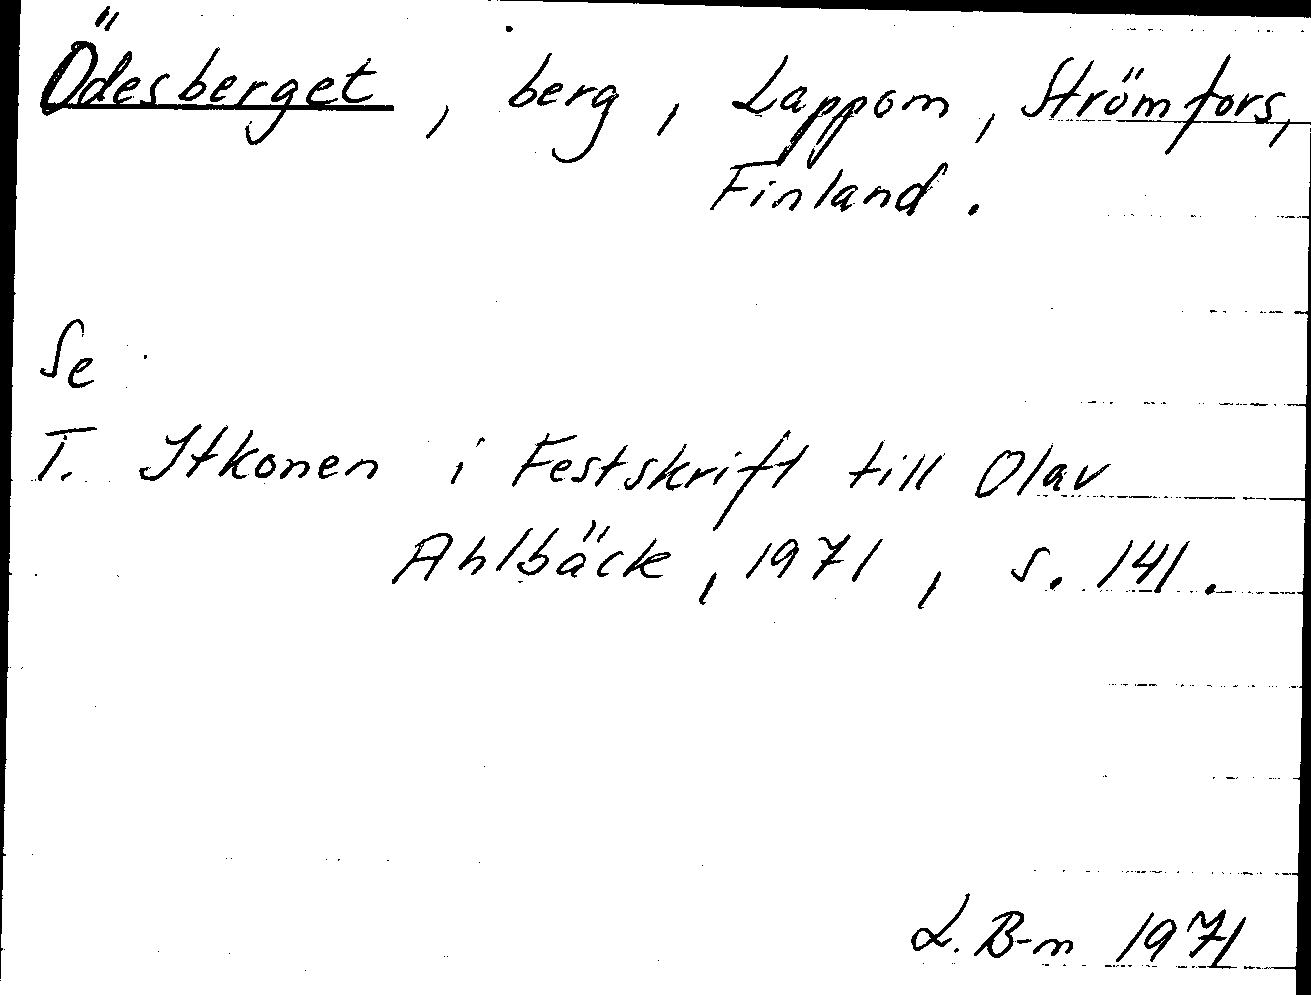 Ödesberget, berg, Lappom, Strömfors,
Finland.
Se
T. Itkonen i Festskrift till Olav
Ahlbäck, 1971, s. 141.
L. B-m 1971